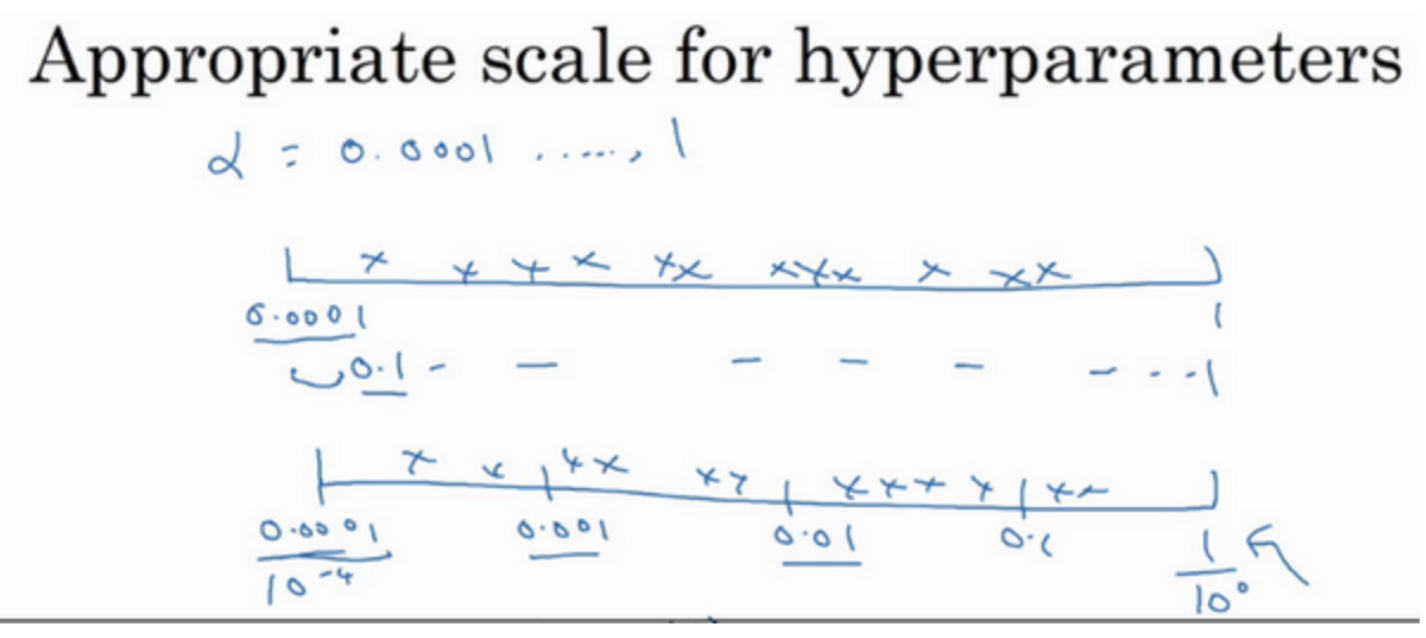 Appropriate scale for hyperparameters
α = 0.0001 ....., 1
0.0001 1
0.1 - - - - - - - - 1
0.0001 0.001 0.01 0.1 1
10⁻⁴ 10⁰